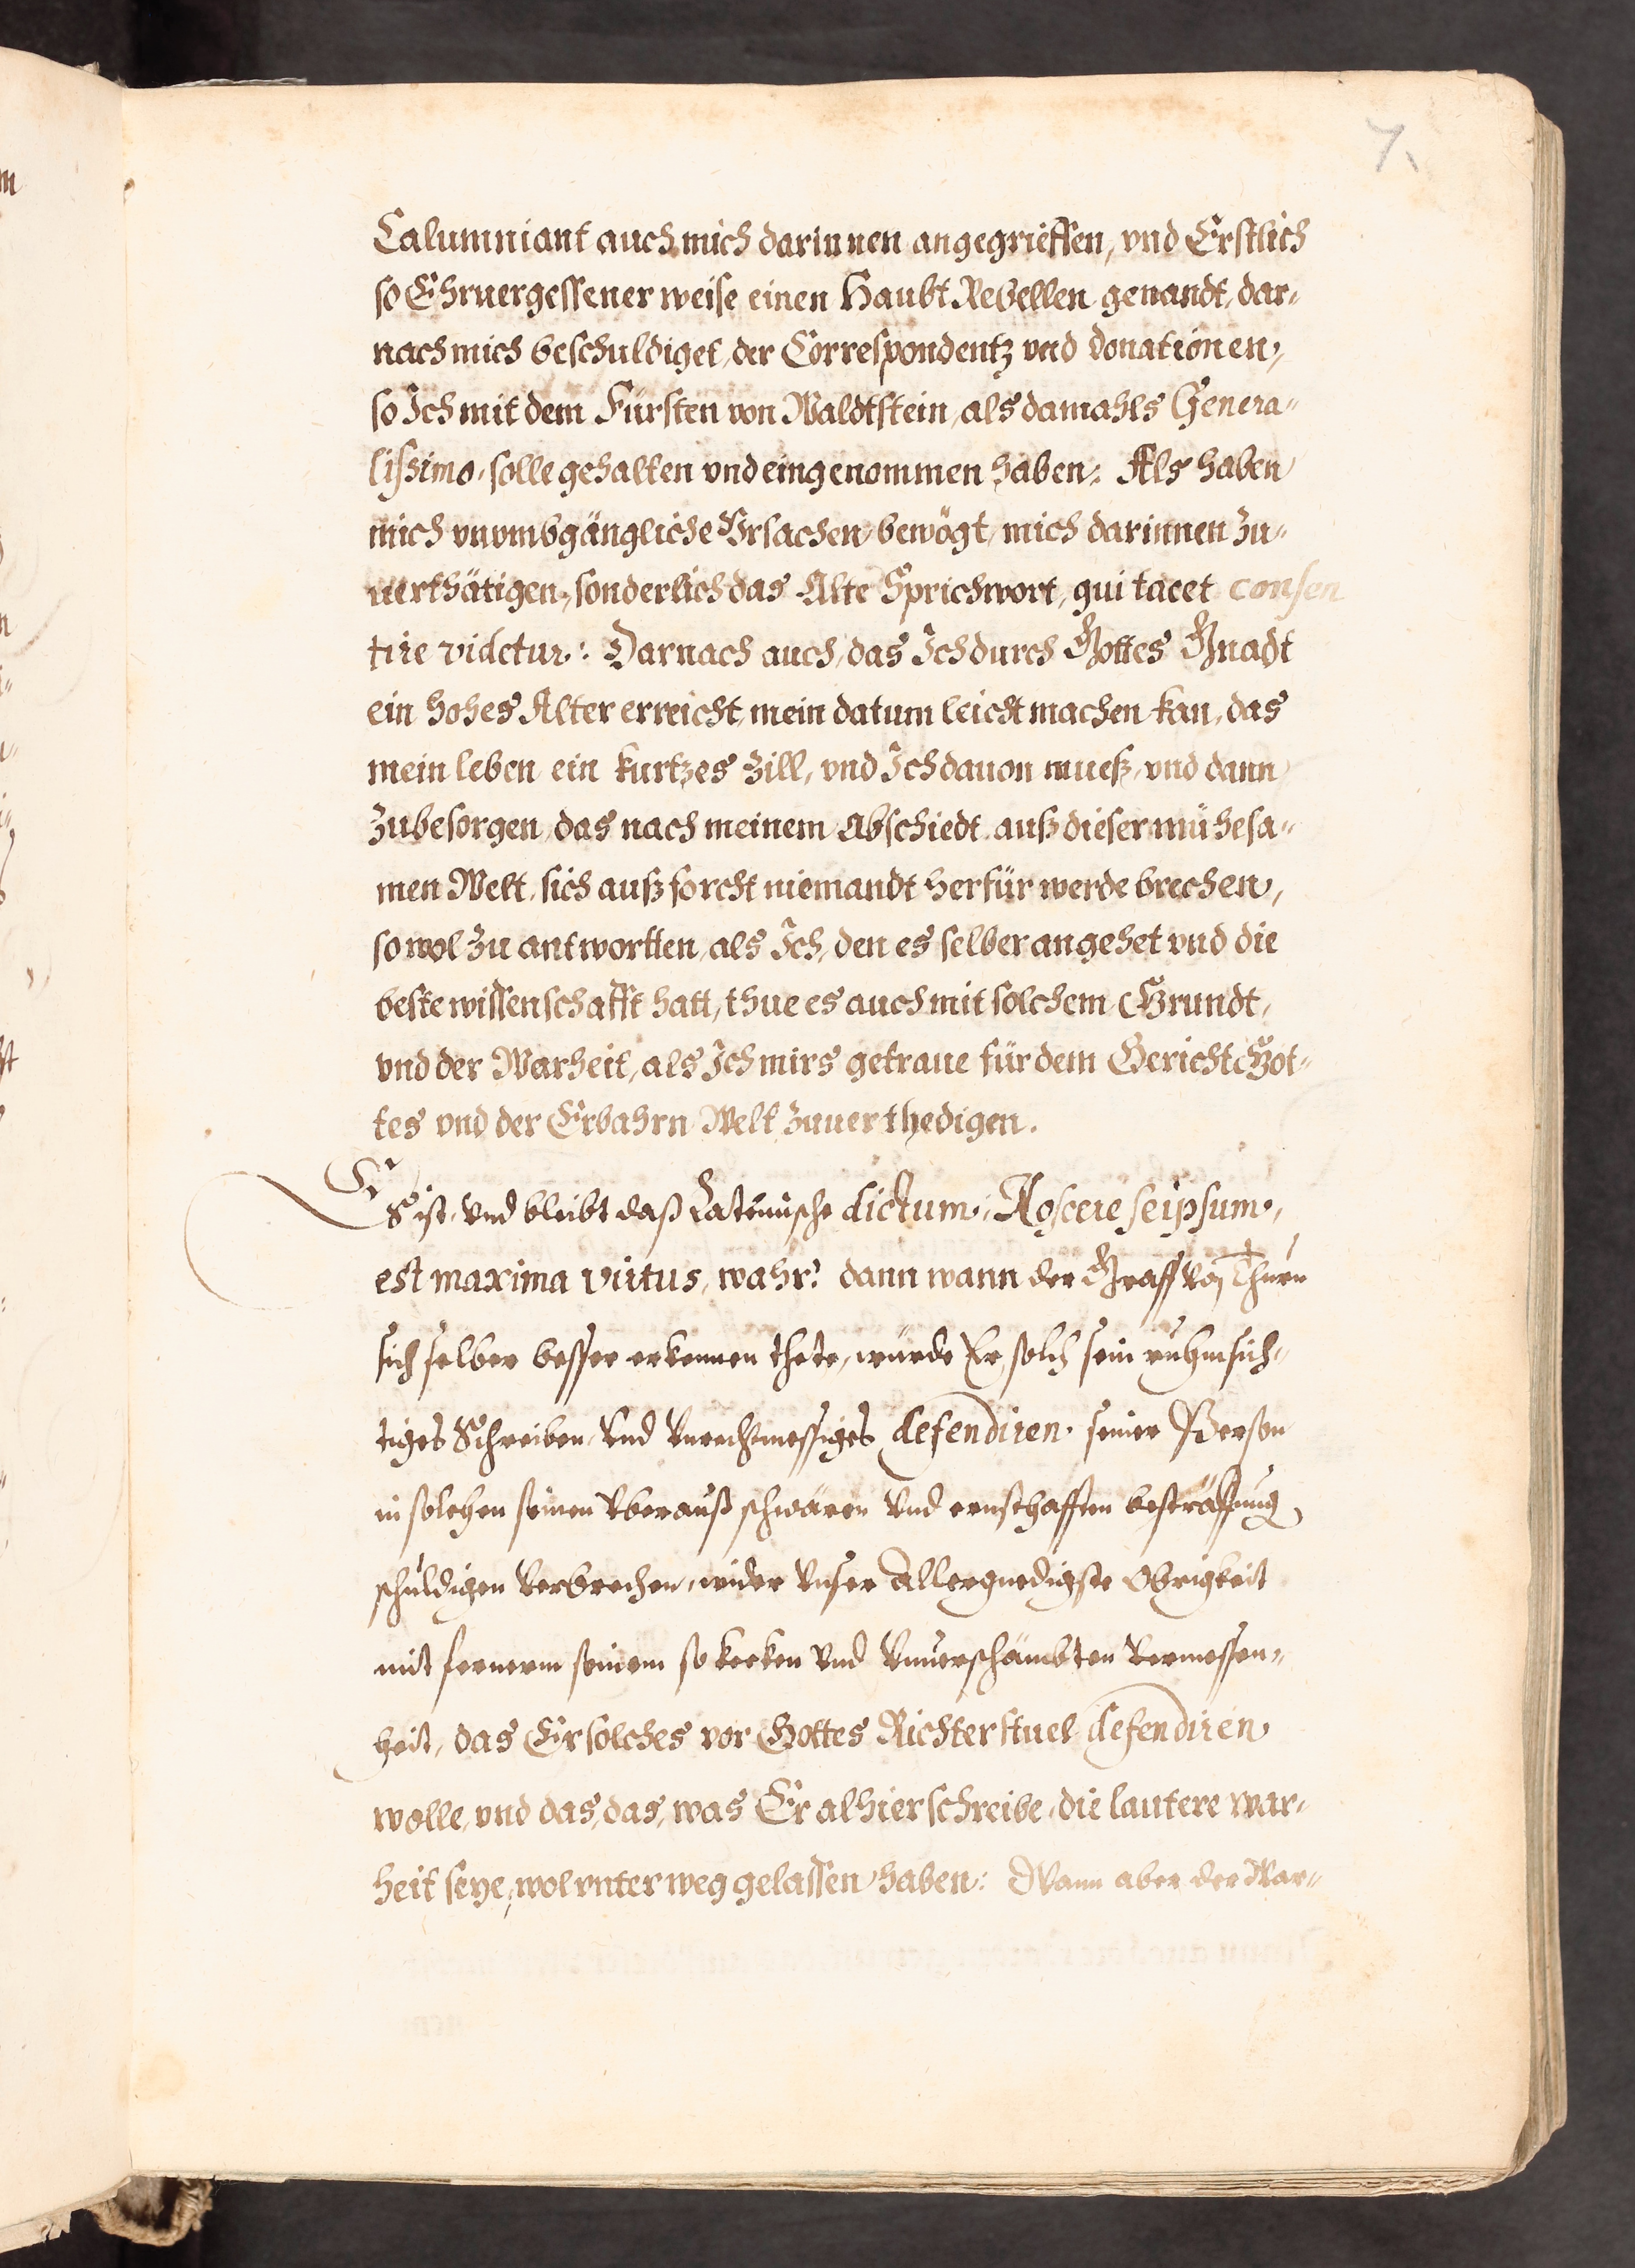 7.
Calumniant auch mich darinnen angegrieffen, vnd Erstlich
so Ehruergessener weise einen Haubt Rebellen genandt, dar„
nach mich beschuldiget, der Correspondentz vnd donationen,
so Ich mit dem Fürsten von Waldtstein, als damahls Genera„
lissimo, solle gehalten vnd eingenommen haben: Als haben
mich vnumbgängliche Vrsachen, bewögt, mich darinnen zu„
uerthätigen, sonderlich das Alte Sprichwort, qui tacet consen
tire videtur: Darnach auch, das Ich durch Gottes Gnadt
ein hohes Alter erreicht, mein datum leicht machen kan, das
mein leben ein kurtzes Zill, vnd Ich dauon mueß, vnd dann
Zubesorgen das nach meinem Abschiedt auß dieser mühesa„
men Welt, sich auß forcht niemandt herfür werde brechen,
so wol zu antwortten, als Ich, den es selber angehet vnd die
beste wissenschafft hatt, thue es auch mit solchem Grundt,
vnd der Warheit, als Ich mirs getraue für dem Gericht Got„
tes vnd der Erbahrn Welt zuuerthedigen.
Es ist, vnd bleibt daß Lateinische dictum, Noscere seipsum,
est maxima virtus, wahr: dann wann der Graff von Thurn
sich selber besser erkennen thete, würde Er solch sein ruhmsich„
tiges Schreiben, vnd vnrechtmessiges defendiren seiner Person
in solchen seinen vberauß schwären vnd ernsthafften besträffung
schuldigen verbrechen, wider vnser Allergnedigste Obrigkeit
mit fernerm seinem so kecken vnd vnuerschämbten vermessen„
heit, das Er solches vor Gottes Richterstuel defendiren
wolle, vnd das, das, was Er alhier schreibe, die lautere war„
heit seye, wol vnterweg gelassen haben: Wann aber der War„